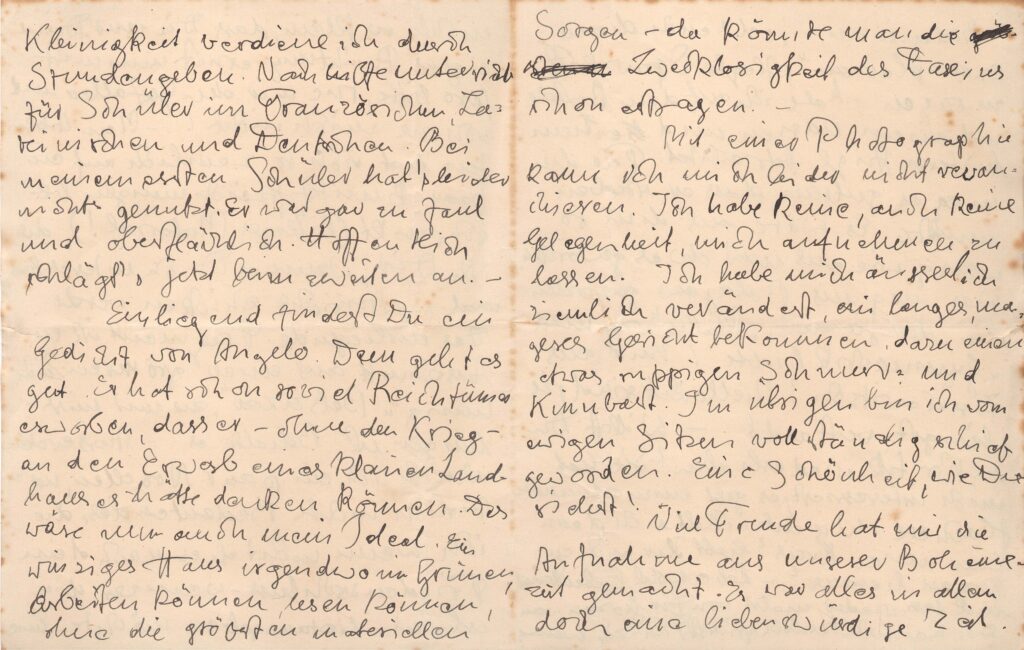 Kleinigkeit verdiene ich durch
Stundengeben. Nachhilfeunterricht
für Schüler im Französischen, La-
teinischen und Deutschen. Bei
meinem ersten Schüler hat's leider
nicht genutzt. Er war gar zu faul
und oberflächlich. Hoffentlich
schlägt's jetzt beim zweiten an. –
Einliegend findest Du ein
Gedicht von Angelo. Dem geht es
gut. Er hat schon soviel Reichtümer
erworben, dass er – ohne den Krieg –
an den Erwerb eines kleinen Land-
hauses hätte denken können. Das
wäre nun auch mein Ideal. Ein
winziges Haus irgendwo im Grünen,
Arbeiten können, lesen können,
ohne die gröbsten materiellen
Sorgen – da könnte man die
Zwecklosigkeit des Daseins
schon ertragen. –
Mit einer Photographie
kann ich mich leider nicht revan-
chieren. Ich habe keine, auch keine
Gelegenheit, mich aufnehmen zu
lassen. Ich habe mich äusserlich
ziemlich verändert, ein langes, ma-
geres Gesicht bekommen, dazu einen
etwas ruppigen Schnurr- und
Kinnbart. Im übrigen bin ich vom
ewigen Sitzen vollständig schief
geworden. Eine Schönheit, wie Du
siehst!
Viel Freude hat mir die
Aufnahme aus unserer Bohème-
zeit gemacht. Es war alles in allem
doch eine liebenswürdige Zeit.